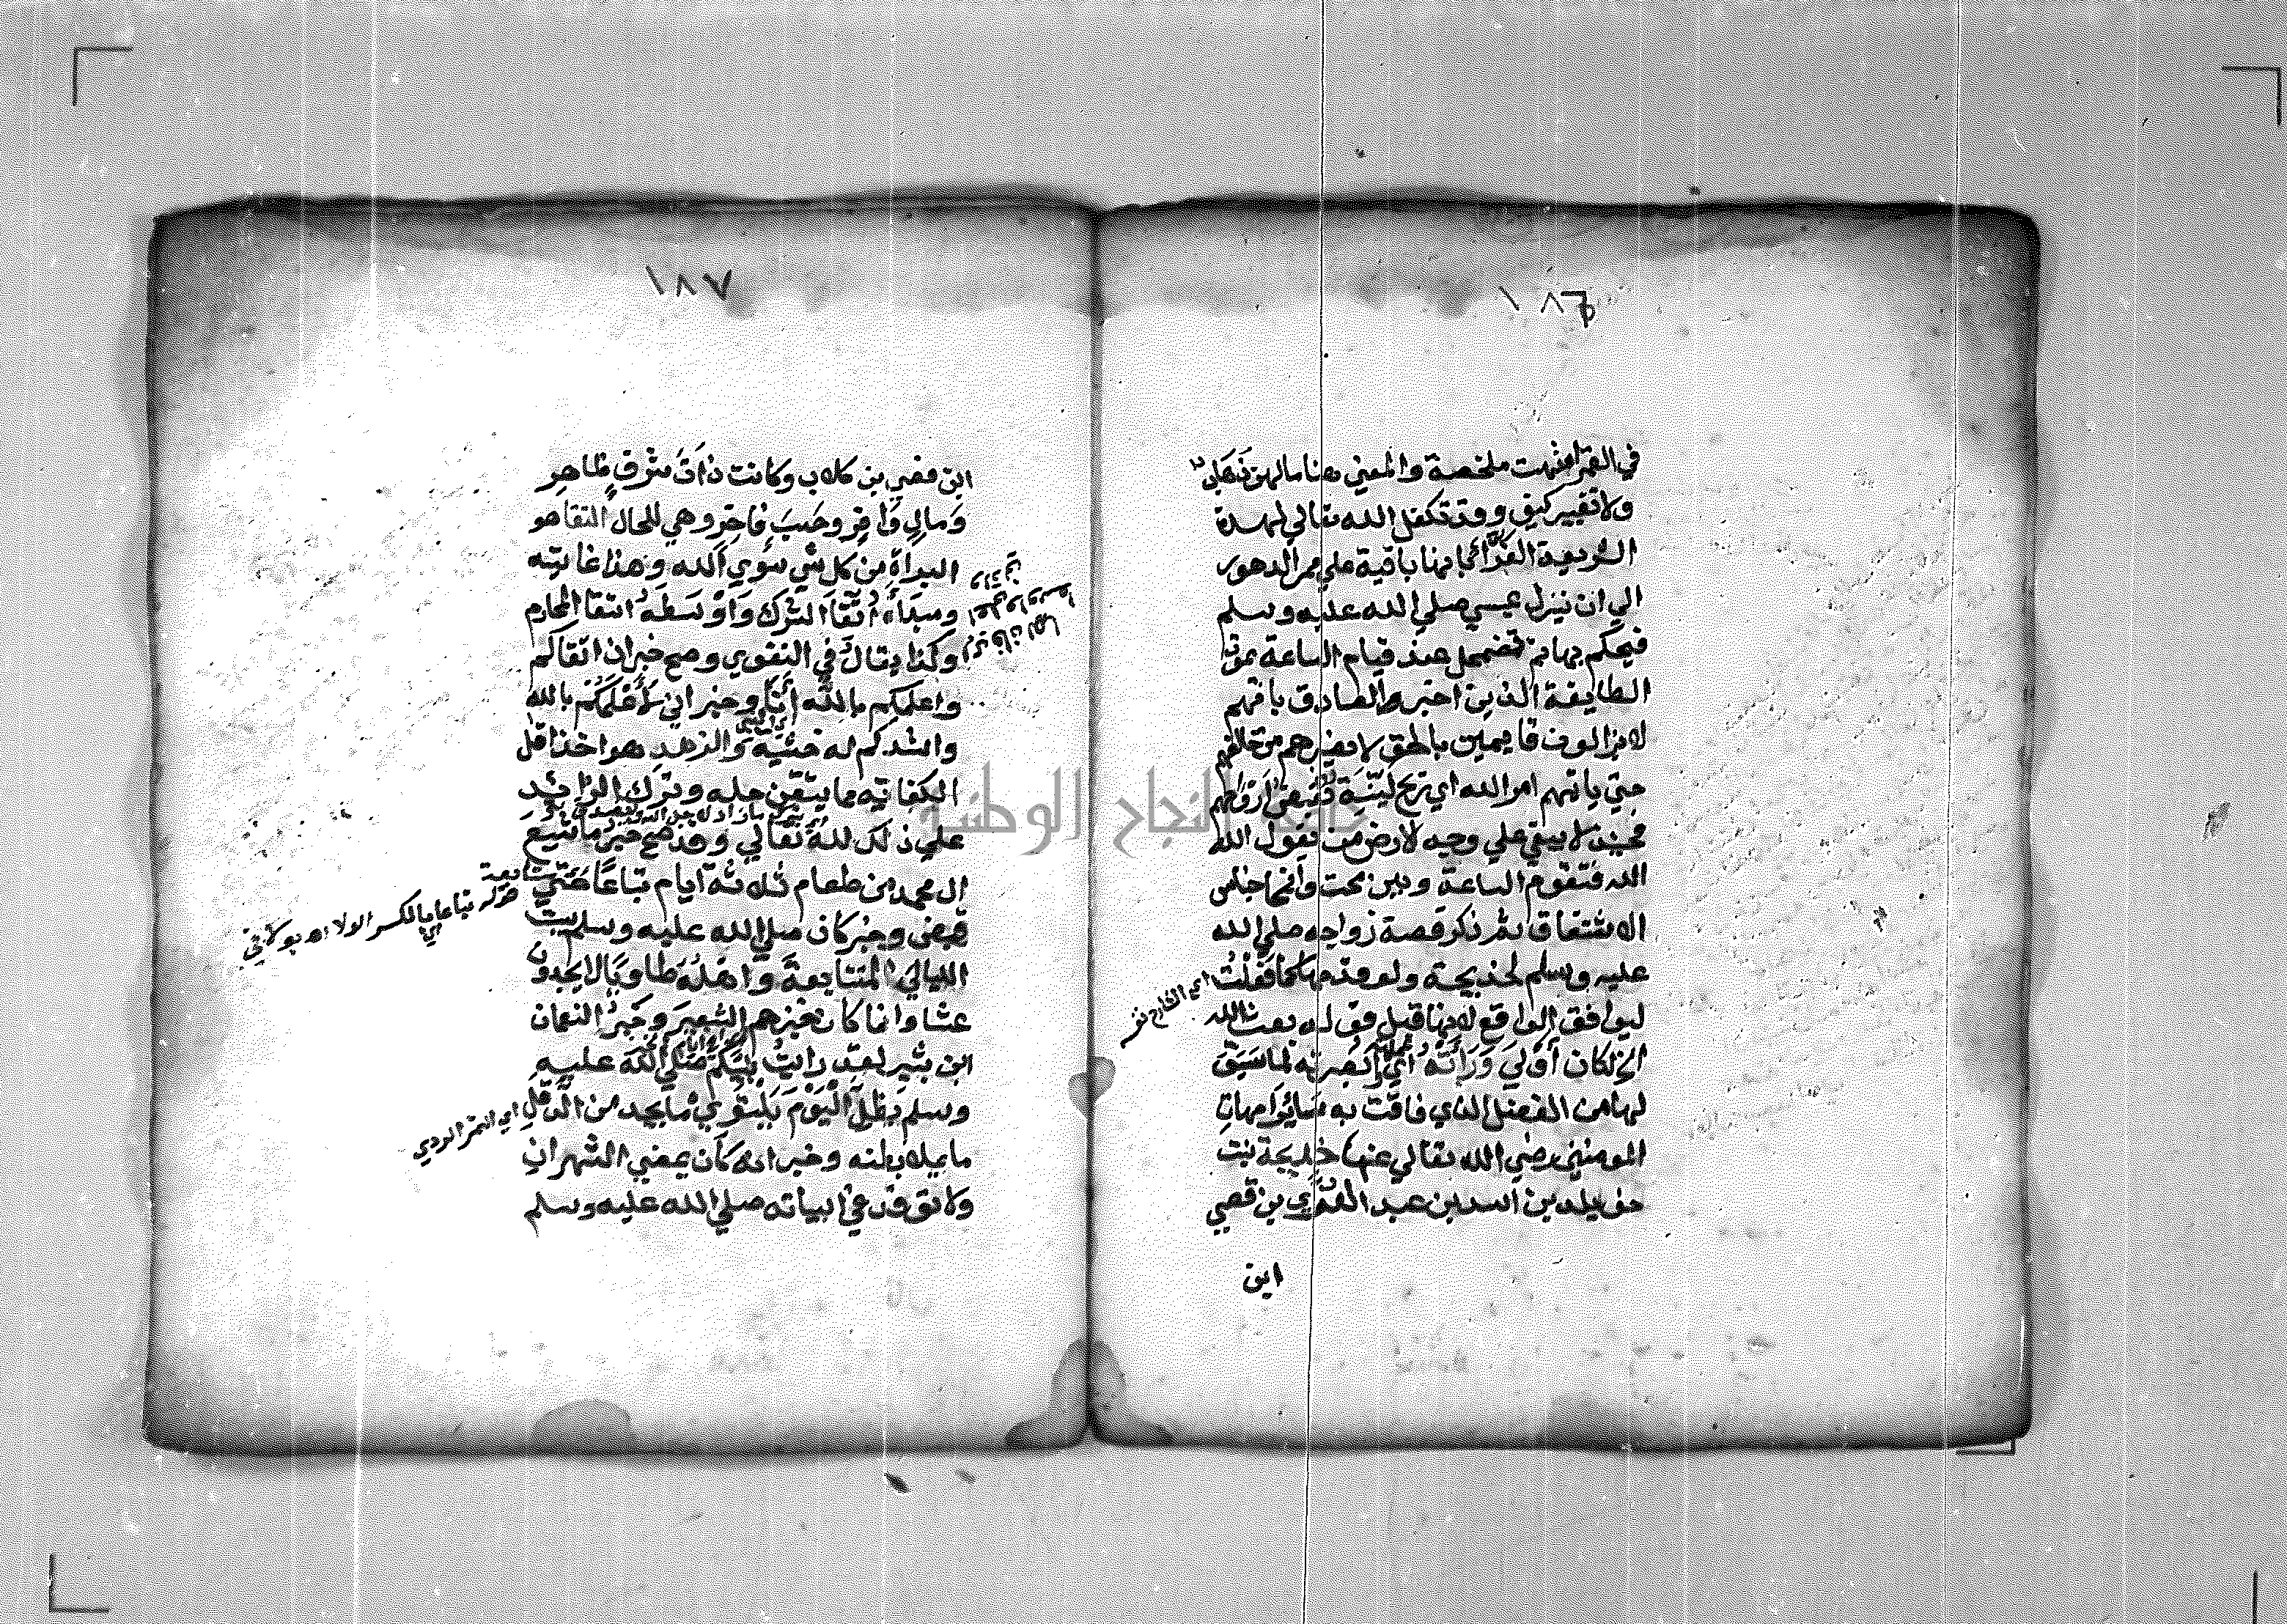 ١٨٦
في العقر امنهت ملخصة والمعني هنا مالهن
ولا تغيير كيف وقد تكفل الله تعالي لهذه
الشريعة الغرائ بانها باقية علي ممر الدهور
الي ان ينزل عيسي صلي الله عليه وسلم
فيحكم بها ثم تضمحل عند قيام الساعة بموت
الطايفة الذين اخبر الصادق بانهم
لا يزالون قايمين بالحق لا يضرهم من خالفهم
حتي ياتيهم امر الله اي ريح لينة تقبض ارواحهم
فحينئذ لا يبقي علي وجه الارض من يقول الله
الله فتقوم الساعة وبين محت وانمحا جناس
الاشتقاق ثم ذكر قصة زواجه صلي الله
عليه وسلم لخديجة ولو قدمها كما فعلت
اي الشارح نفسه
ليوافق الواقع لانها قبل قوله بعث الله
الخ لكان اولي وراته اي ابصرته لما سبق
لها من الفضل الذي فاقت به سائر امهات
المومنين رضي الله تعالي عنها خديجة بنت
خويلد بن اسد بن عبد العزي بن قصي
ابن
١٨٧
ابن قصي بن كلاب وكانت ذات شرف ظاهر
ومال وافر وحسب فاخر وهي للحال التقا هو
البراة من كل شي سوي الله وهذا غايته
ومبداه اتقا الشرك واوسطه اتقا المحارم
وكذا يقال في التقوي وصح خبر ان اتقاكم
واعلمكم بالله انا وخبر اني لاعلمكم بالله
واشدكم له خشية والزهد هو اخذ اقل
الكفاية مما يتيقن حله وترك الزائد
علي ذلك لله تعالي وقد صح خبر ما شبع
ال محمد من طعام ثلاثة ايام تباعا حتي
متتابعة
قوله تباعا بالكسر اي الولاء اهـ
قبض وخبر كان صلي الله عليه وسلم يبيت
الليالي المتتابعة واهله طاويا لا يجدون
عشا وانما كان خبزهم الشعير وخبر النعمان
ابن بشير لقد رايت نبيكم صلي الله عليه
وسلم يظل اليوم يلتوي ما يجد من الدقل
اي التمر الردي
ما يملا بطنه وخبر انه كان يمضي الشهران
ولا توقد في ابياته صلي الله عليه وسلم
جامعة النجاح الوطنية